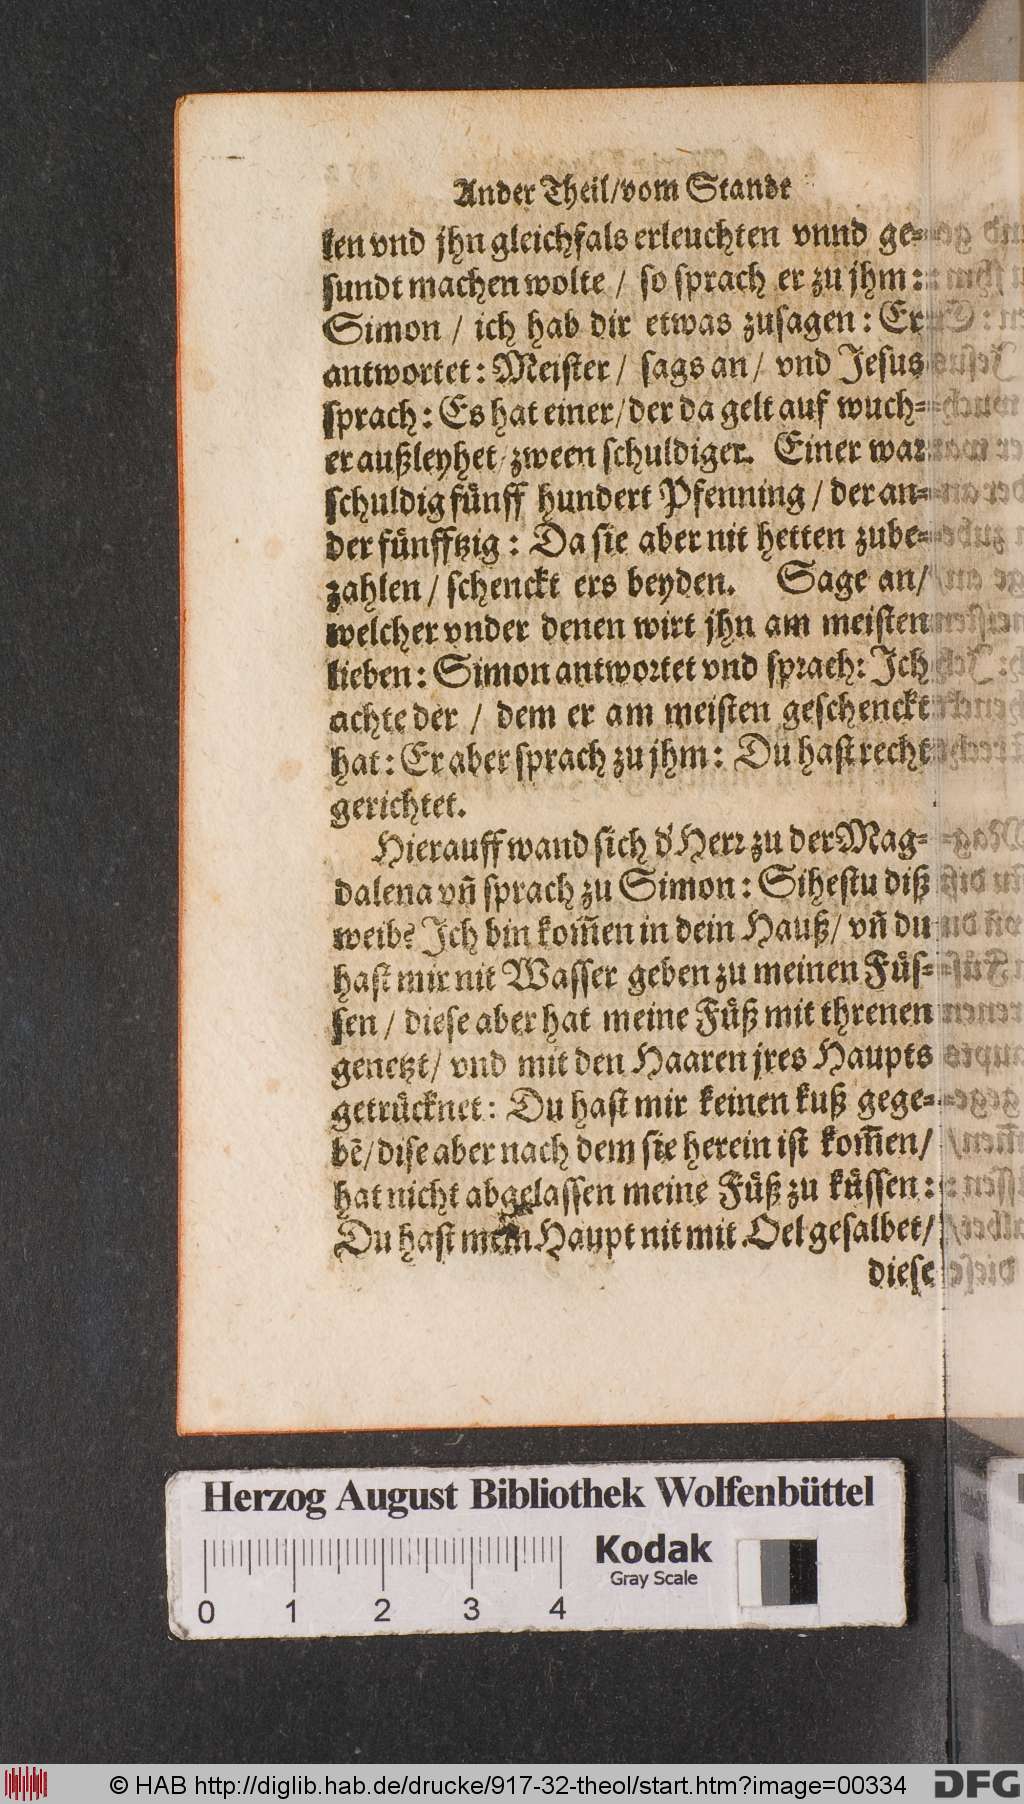 Ander Theil/vom Stande
len vnd jhn gleichfals erleuchten vnnd ge-
sundt machen wolte / so sprach er zu jhm:
Simon / ich hab dir etwas zusagen: Er
antwortet: Meister / sags an / vnd Jesus
sprach: Es hat einer/der da gelt auf wuch-
er außleyhet/zween schuldiger. Einer war
schuldig fünff hundert Pfenning / der an-
der fünfftzig: Da sie aber nit hetten zube-
zahlen / schenckt ers beyden. Sage an/
welcher vnder denen wirt jhn am meisten
lieben: Simon antwortet vnd sprach: Jch
achte der / dem er am meisten geschenckt
hat: Er aber sprach zu jhm: Du hast recht
gerichtet.
Hierauff wand sich d' Herr zu der Mag-
dalena vñ sprach zu Simon: Sihestu diß
weib? Jch bin kom̃en in dein Hauß/ vñ du
hast mir nit Wasser geben zu meinen Füs-
sen / diese aber hat meine Füß mit threnen
genetzt/ vnd mit den Haaren jres Haupts
getrücknet: Du hast mir keinen kuß gege-
bẽ/dise aber nach dem sie herein ist kom̃en/
hat nicht abgelassen meine Füß zu küssen:
Du hast mein Haupt nit mit Oel gesalbet/
diese
Herzog August Bibliothek Wolfenbüttel
Kodak
Gray Scale
0 1 2 3 4
© HAB http://diglib.hab.de/drucke/917-32-theol/start.htm?image=00334
DFG